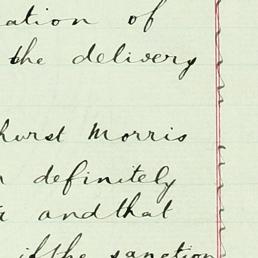 ation of
the delivery
hurst Morris
definitely
and that
if the sanction